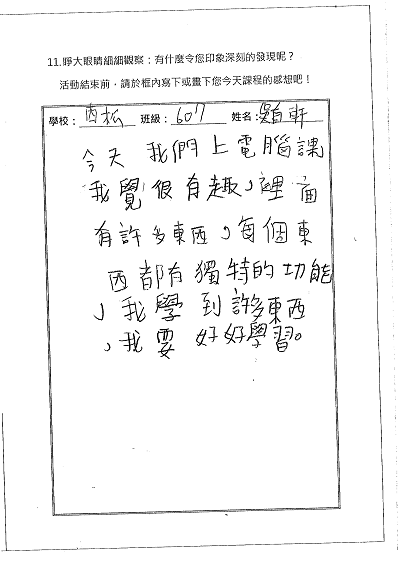 11.睜大眼睛細細觀察：有什麼令您印象深刻的發現呢？
活動結束前，請於框內寫下或畫下您今天課程的感想吧！
學校：西松 班級：607 姓名：軒
今天 我們上電腦課
我覺很有趣，裡面
有許多東西，每個東
西都有獨特的功能
，我學 到許多東西
，我要 好好學習。